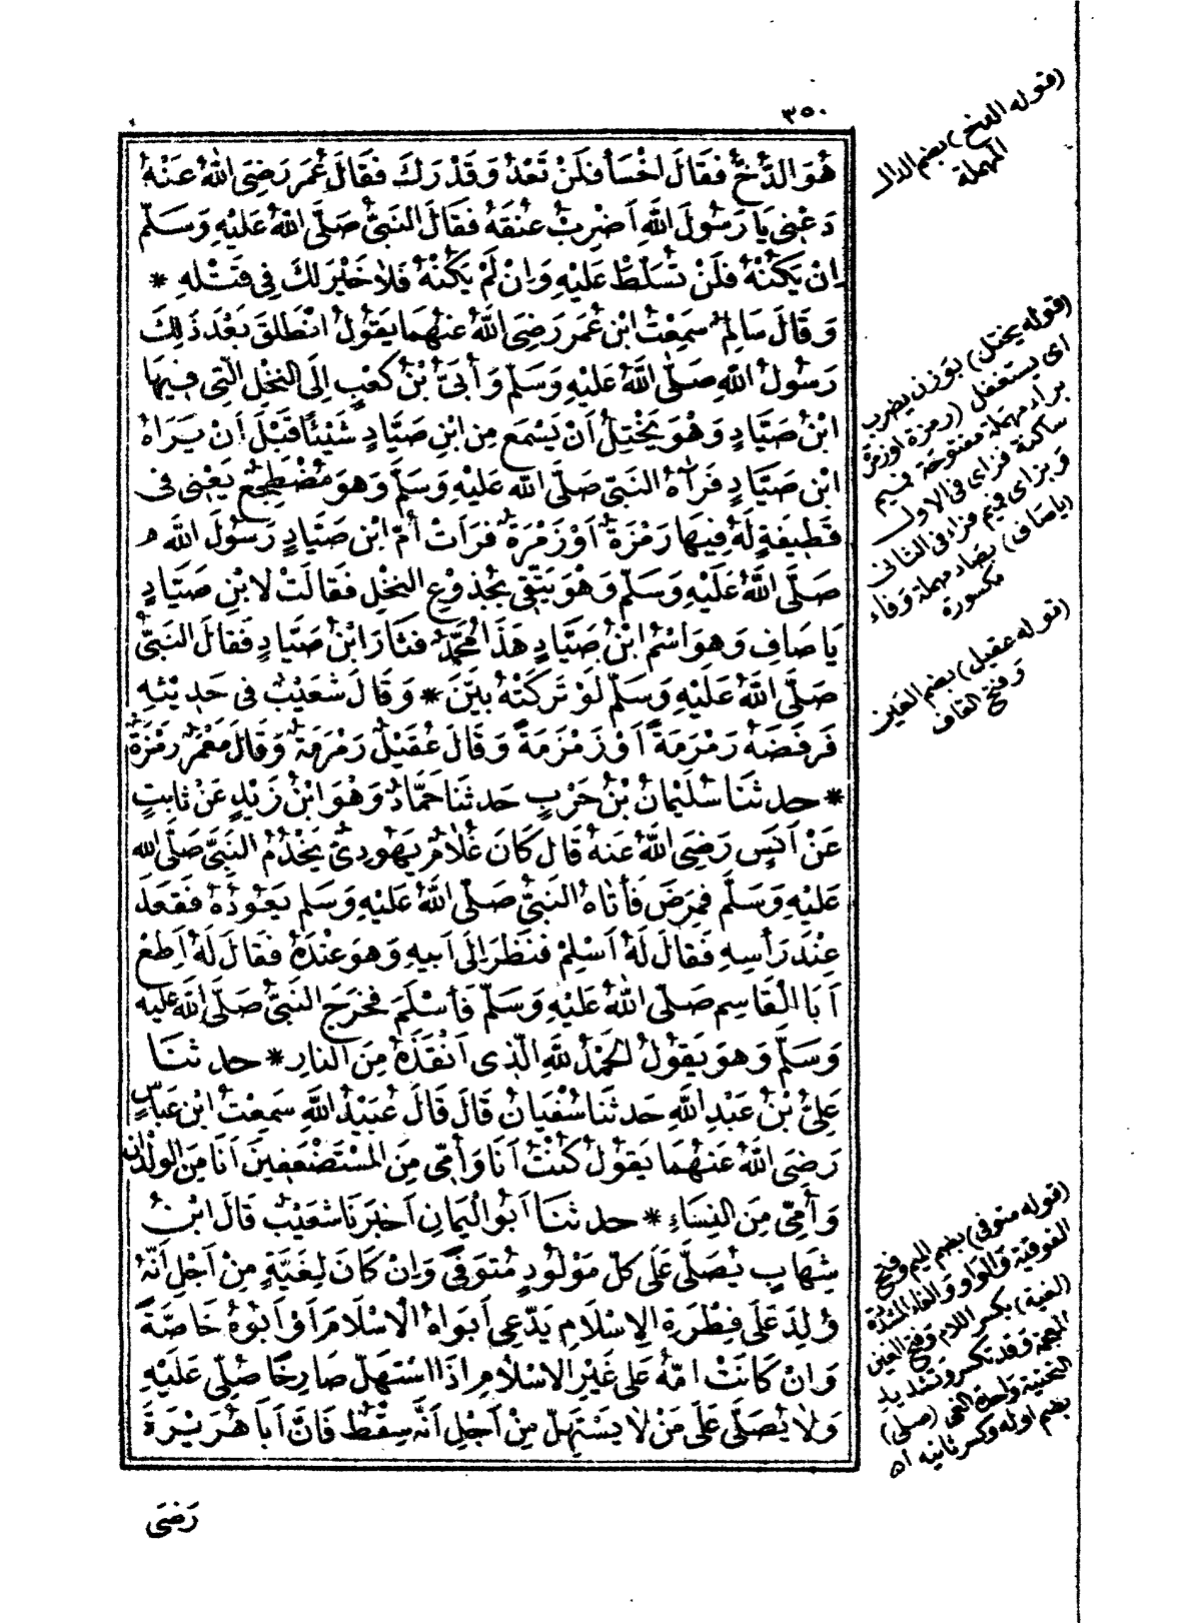 ٣٥٠
هُوَ الدُّخُّ فَقَالَ اخْسَأْ فَلَنْ تَعْدُ وَقَدْرَكَ فَقَالَ عُمَرُ رَضِيَ اللّٰهُ عَنْهُ
دَعْنِي يَا رَسُولَ اللّٰهِ اَضْرِبْ عُنُقَهُ فَقَالَ النَّبِيُّ صَلَّى اللّٰهُ عَلَيْهِ وَسَلَّمَ
اِنْ يَكُنْهُ فَلَنْ تُسَلَّطَ عَلَيْهِ وَاِنْ لَمْ يَكُنْهُ فَلاَ خَيْرَ لَكَ فِي قَتْلِهِ *
وَقَالَ سَالِمٌ سَمِعْتُ ابْنَ عُمَرَ رَضِيَ اللّٰهُ عَنْهُمَا يَقُولُ انْطَلَقَ بَعْدَ ذٰلِكَ
رَسُولُ اللّٰهِ صَلَّى اللّٰهُ عَلَيْهِ وَسَلَّمَ وَأُبَيُّ بْنُ كَعْبٍ إِلَى النَّخْلِ الَّتِي فِيهَا
ابْنُ صَيَّادٍ وَهُوَ يَخْتِلُ أَنْ يَسْمَعَ مِنِ ابْنِ صَيَّادٍ شَيْئًا قَبْلَ أَنْ يَرَاهُ
ابْنُ صَيَّادٍ فَرَآهُ النَّبِيُّ صَلَّى اللّٰهُ عَلَيْهِ وَسَلَّمَ وَهُوَ مُضْطَجِعٌ يَعْنِي فِي
قَطِيفَةٍ لَهُ فِيهَا رَمْزَةٌ اَوْ زَمْرَةٌ فَرَاَتْ أُمُّ ابْنِ صَيَّادٍ رَسُولَ اللّٰهِ
صَلَّى اللّٰهُ عَلَيْهِ وَسَلَّمَ وَهُوَ يَتَّقِي بِجُذُوعِ النَّخْلِ فَقَالَتْ لاِبْنِ صَيَّادٍ
يَا صَافِ وَهُوَ اسْمُ ابْنِ صَيَّادٍ هَذَا مُحَمَّدٌ فَثَارَ ابْنُ صَيَّادٍ فَقَالَ النَّبِيُّ
صَلَّى اللّٰهُ عَلَيْهِ وَسَلَّمَ لَوْ تَرَكَتْهُ بَيَّنَ * وَقَالَ شُعَيْبٌ فِي حَدِيثِهِ
فَرَفَضَهُ رَمْرَمَةٌ اَوْ زَمْزَمَةٌ وَقَالَ عُقَيْلٌ رَمْرَمَةٌ وَقَالَ مَعْمَرٌ رَمْزَةٌ
* حدثنَا سُلَيْمَانُ بْنُ حَرْبٍ حَدثنَا حَمَّادٌ وَهُوَ ابْنُ زَيْدٍ عَنْ ثَابِتٍ
عَنْ اَنَسٍ رَضِيَ اللّٰهُ عَنْهُ قَالَ كَانَ غُلاَمٌ يَهُودِيٌّ يَخْدُمُ النَّبِيَّ صَلَّى اللّٰه
عَلَيْهِ وَسَلَّمَ فَمَرِضَ فَأَتَاهُ النَّبِيُّ صَلَّى اللّٰهُ عَلَيْهِ وَسَلَّمَ يَعُودُهُ فَقَعَدَ
عِنْدَ رَأْسِهِ فَقَالَ لَهُ اَسْلِمْ فَنَظَرَ اِلَى اَبِيهِ وَهُوَ عِنْدَهُ فَقَالَ لَهُ اَطِعْ
اَبَا الْقَاسِمِ صَلَّى اللّٰهُ عَلَيْهِ وَسَلَّمَ فَأَسْلَمَ فَخَرَجَ النَّبِيُّ صَلَّى اللّٰه عَلَيْهِ
وَسَلَّمَ وَهُوَ يَقُولُ الْحَمْدُ لِلّٰهِ الَّذِي اَنْقَذَهُ مِنَ النَّارِ * حدثنَا
عَلِيُّ بْنُ عَبْدِ اللّٰهِ حَدثنَا سُفْيَانُ قَالَ قَالَ عُبَيْدُ اللّٰهِ سَمِعْتُ ابْنَ عَبَّاسٍ
رَضِيَ اللّٰهُ عَنْهُمَا يَقُولُ كُنْتُ اَنَا وَأُمِّي مِنَ الْمُسْتَضْعَفِينَ اَنَا مِنَ الْوِلْدَانِ
وَأُمِّي مِنَ النِّسَاءِ * حدثنَا اَبُو الْيَمَانِ اَخْبَرَنَا شُعَيْبٌ قَالَ ابْنُ
شِهَابٍ يُصَلَّى عَلَى كُلِّ مَوْلُودٍ مُتَوَفًّى وَاِنْ كَانَ لِغَيَّةٍ مِنْ اَجْلِ اَنَّهُ
وُلِدَ عَلَى فِطْرَةِ الاِسْلاَمِ يَدَّعِي اَبَوَاهُ الْاِسْلاَمَ اَوْ اَبُوهُ خَاصَّةً
وَاِنْ كَانَتْ اُمُّهُ عَلَى غَيْرِ الاِسْلاَمِ اِذَا اسْتَهَلَّ صَارِخًا صُلِّيَ عَلَيْهِ
وَلاَ يُصَلَّى عَلَى مَنْ لاَ يَسْتَهِلُّ مِنْ اَجْلِ اَنَّهُ سِقْطٌ فَاِنَّ اَبَا هُرَيْرَةَ
رَضِيَ
(قوله الدخ) بضم الدال
المهملة
(قوله يختل) بوزن يضرب
اي يستغفل (رمزة او زمرة)
براء مهملة مفتوحة فميم
ساكنة فزاي في الاول
وبزاي فميم فراء في الثاني
(ياصاف) بصاد مهملة وفاء
مكسورة
(قوله عقيل) بضم العين
وفتح القاف
(قوله متوفى) بضم الميم وفتح
الفوقية والواو والفاء المشددة
(لغية) بكسر اللام وفتح الغين
المعجمة وقد تكسر وتشديد
التحتية واحدة الغى (صلى)
بضم اوله وكسر ثانيه اه